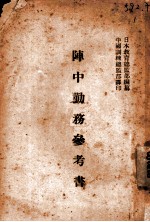 日本教育總監部編纂
中國訓練總監部譯印
陣中勤務參考書